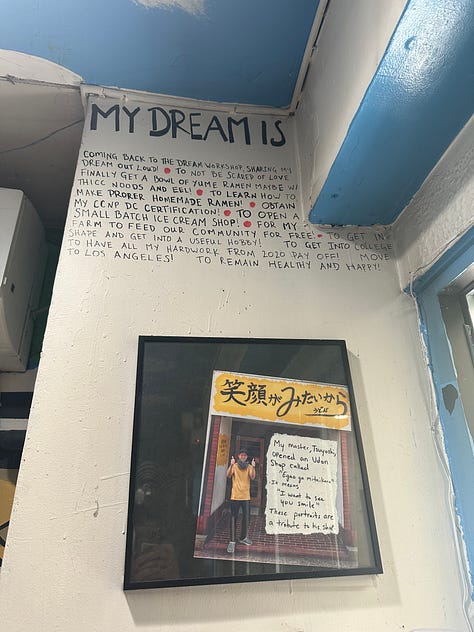 MY DREAM IS
COMING BACK TO THE DREAM WORKSHOP, SHARING MY
DREAM OUT LOUD! • TO NOT BE SCARED OF LOVE
FINALLY GET A BOWL OF YUME RAMEN MAYBE W/
THICC NOODS AND EEL! • TO LEARN HOW TO
MAKE PRORER HOMEMADE RAMEN! • OBTAIN
MY CCNP DC CERTIFICATION! • TO OPEN A
SMALL BATCH ICE CREAM SHOP! • FOR MY
FARM TO FEED OUR COMMUNITY FOR FREE! • TO GET IN
SHAPE AND GET INTO A USEFUL HOBBY! TO GET INTO COLLEGE
TO HAVE ALL MY HARDWORK FROM 2020 PAY OFF! MOVE
TO LOS ANGELES! TO REMAIN HEALTHY AND HAPPY!
笑顔がみたいから
うどんば
My master, Tsuyoshi,
opened an Udon
Shop called
"Egao ga mitaikara"
It means
"I want to see
you smile"
These portraits are
a tribute to his shop